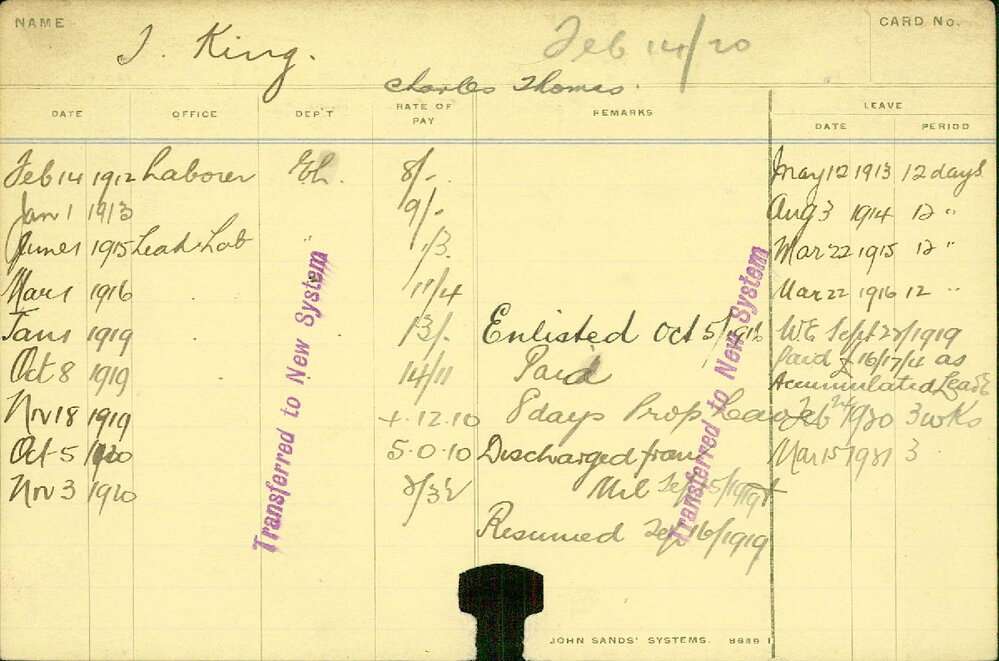 NAME
CARD No.
J. King.
Feb 14/20
Charles Thomas.
DATE OFFICE DEP'T RATE OF PAY REMARKS LEAVE
DATE PERIOD
Feb 14 1912 Laborer 8/-. May 12 1913 12 days
Jan 1 1913 9/-. Aug 3 1914 12 "
June 1 1915 Lead. Lab " Mar 22 1915 12 "
Mar 1 1916 11/4 Mar 22 1916 12 "
Jan 1 1919 13/-. Enlisted Oct 5/1916 WE Sept 27/1919
Oct 8 1919 14/11 Paid Paid £16/17/4 as
Accumulated Leave
Nov 18 1919 4.12.10 8 days Prop Leave Feb 1920 3 wks
Oct 5 1920 5-0-10 Discharged from Mar 15 1921 3
Nov 3 1920 Mil Sep 15/1919
Resumed Sep 16/1919
Transferred to New System
Transferred to New System
JOHN SANDS' SYSTEMS. 8689